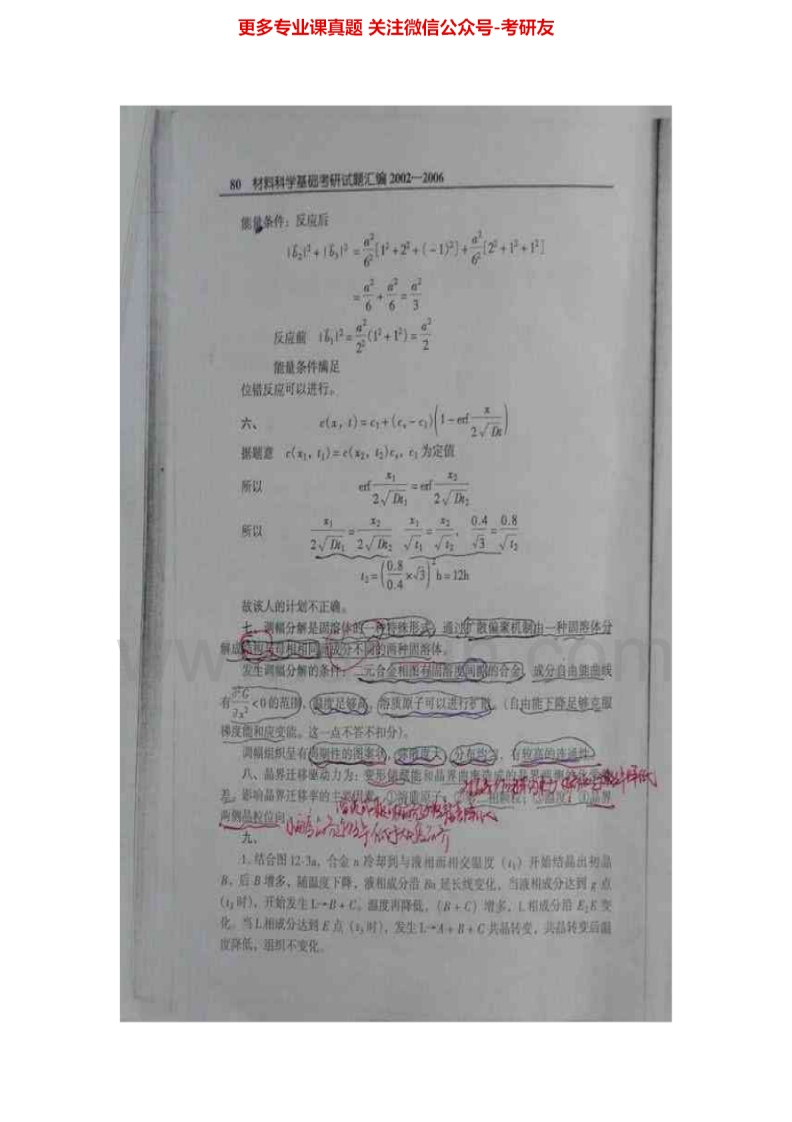 更多专业课真题 关注微信公众号-考研友
80 材料科学基础考研试题汇编 2002—2006
能量条件：反应后
|b₂|²+|b₃|² = a²/6² [1²+2²+(-1)²] + a²/6² [2²+1²+1²]
= a²/6 + a²/6 = a²/3
反应前 |b₁|² = a²/2² (1²+1²) = a²/2
能量条件满足
位错反应可以进行。
六、 c(x, t) = c₁+(cₛ-c₁)(1-erf x/2√Dt)
据题意 c(x₁, t₁) = c(x₂, t₂)cₛ, c₁ 为定值
所以 erf x₁/2√Dt₁ = erf x₂/2√Dt₂
所以 x₁/2√Dt₁ = x₂/2√Dt₂ x₁/√t₁ = x₂/√t₂, 0.4/√3 = 0.8/√t₂
t₂ = (0.8/0.4 ×√3)² h = 12h
故该人的计划不正确。
七、调幅分解是固溶体的一种特殊形式，通过扩散偏聚机制由一种固溶体分
解成结构与母相相同而成分不同的两种固溶体。
发生调幅分解的条件：二元合金相图有固溶度间隙的合金，成分自由能曲线
有 ∂²G/∂x² <0 的范围，温度足够高，溶质原子可以进行扩散。（自由能下降足够克服
梯度能和应变能。这一点不答不扣分）。
调幅组织呈有周期性的图案状，弥散度大，分布均匀，有较高的连通性。
八、晶界迁移驱动力为：变形储藏能和晶界曲率造成的晶界两侧的化学
差。影响晶界迁移率的主要因素：①溶质原子；②第二相颗粒；③温度；④晶界
两侧晶粒位向
九、
1. 结合图 12-3a，合金 n 冷却到与液相面相交温度（t₁）开始结晶出初晶
B，后 B 增多，随温度下降，液相成分沿 Bn 延长线变化，当液相成分达到 g 点
(t₂ 时)，开始发生 L→B+C。温度再降低，（B+C）增多，L 相成分沿 E₂E 变
化。当 L 相成分达到 E 点（t₃ 时），发生 L→A+B+C 共晶转变，共晶转变后温
度降低，组织不变化。